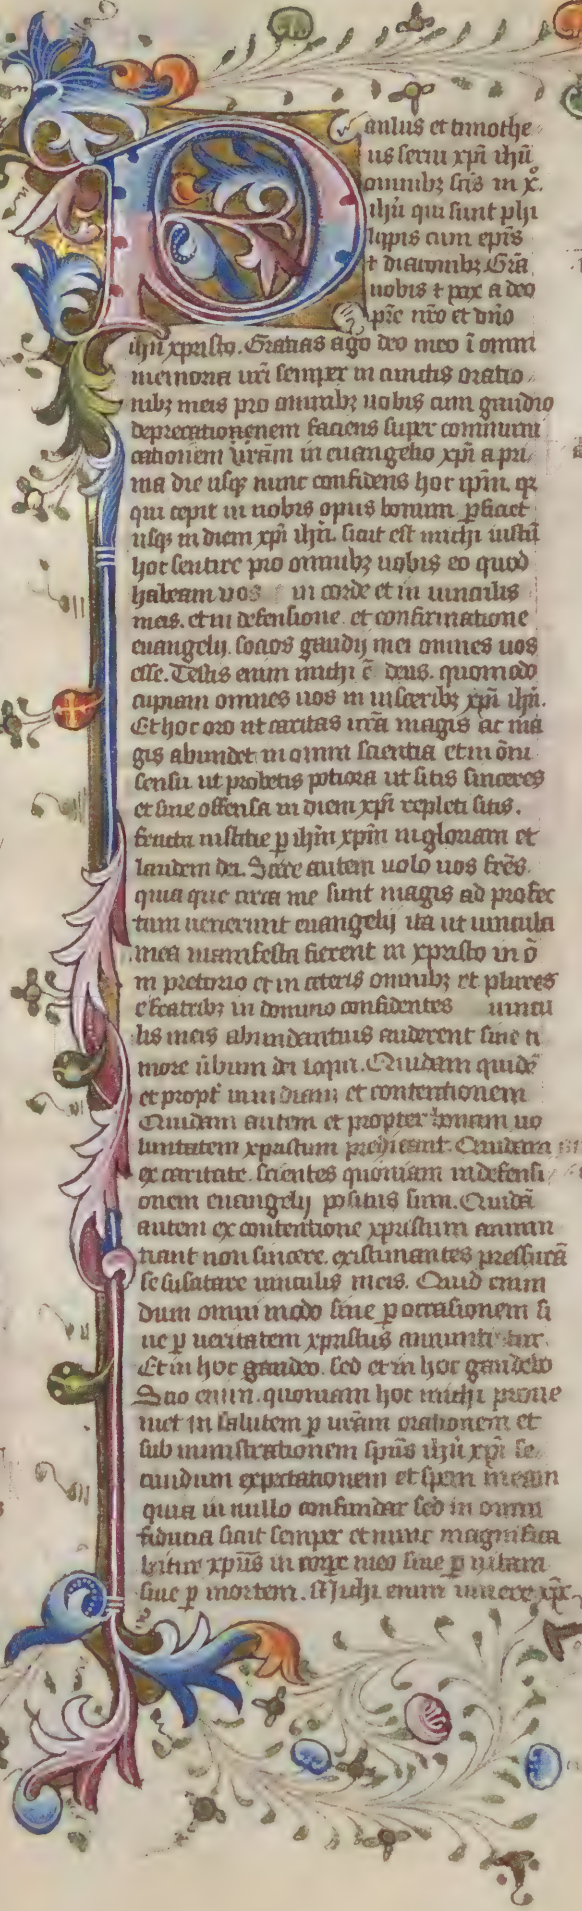 Paulus et timothe
us serui xp̄i ih̄u
omnibꝫ sc̄is in x̊.
ih̄u qui sunt phi
lippis cum ep̄is
⁊ diaconibꝫ Grā
uobis ⁊ pax a deo
pr̄e nr̄o et dn̄o
ih̄u xpristo. Gratias ago deo meo ī omni
memoria ur̄i semper in cunctis oratio
nibꝫ meis pro omnibꝫ uobis cum gaudio
deprecationenem faciens super communi
cationem vr̄am in euangelio xp̄i a pri
ma die usqꝫ nunc confidens hoc ip̄m. qꝛ
qui cepit in uobis opus bonum ꝑficiet
usqꝫ in diem xp̄i ih̄u. sicut est michi iustū
hoc sentire pro omnibꝫ uobis eo quod
habeam uos in corde et in uinculis
meis. et in defensione. et confirmatione
euangelij. socios gaudij mei omnes uos
esse. Testis enim michi ē deus. quomodo
cupiam omnes uos in uisceribꝫ xp̄i ih̄u.
Et hoc oro ut caritas ur̄a magis ac ma
gis abundet in omni scientia et in ōni
sensu. ut probetis potiora ut sitis sinceres
et sine offensa in diem xp̄i repleti sitis.
fructu iustitie ꝑ ih̄m xp̄m in gloriam et
laudem dei. Scire autem uolo uos fr̄es.
quia que circa me sunt magis ad profec
tum uenerunt euangelij ita ut uincula
mea manifesta fierent in xpristo in ō
ni pretorio et in ceteris omnibꝫ et plures
e fratribꝫ in domino confidentes uincu
lis meis abundantius auderent sine ti
more ūbum dei loqui. Quidam quidē
et propt̄ inuidiam et contentionem
Quidam autem et propter bonam uo
luntatem xpristum predicant. Quidam
ex caritate. scientes quoniam in defensi
onem euangelij positus sum. Quidā
autem ex contentione xpristum annun
tiant non sincere. existimantes pressurā
se susitare uinculis meis. Quid enim
dum omni modo siue ꝑ occasionem si
ue ꝑ ueritatem xpristus annuntietur.
Et in hoc gaudeo. sed et in hoc gaudebo
Scio enim. quoniam hoc michi proue
niet in salutem ꝑ ur̄am orationem et
sub ministrationem sp̄us ih̄u xp̄i se
cundum expectationem et spem meam
quia in nullo confundar sed in omni
fiducia sicut semper et nunc magnifica
bitur xp̄us in corpe meo siue ꝑ uitam
siue ꝑ mortem. Michi enim uiuere xp̄c